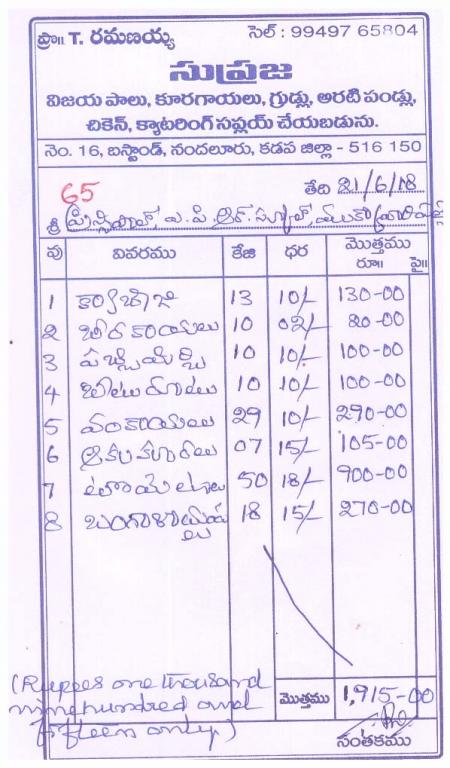 ప్రొ॥ T. రమణయ్య సెల్ : 99497 65804
సుప్రజ
విజయ పాలు, కూరగాయలు, గ్రుడ్లు, అరటి పండ్లు,
చికెన్, క్యాటరింగ్ సప్లయ్ చేయబడును.
నెం. 16, బస్టాండ్, నందలూరు, కడప జిల్లా - 516 150
65 తేది 21/6/18
శ్రీ ప్రిన్సిపాల్, ఎ.పి.ఆర్.స్కూల్,
వు వివరము కేజి ధర మొత్తము
రూ॥ పై॥
1 క్యాబేజి 13 10/- 130-00
2 బీరకాయలు 10 02/- 20-00
3 పచ్చిమిర్చి 10 10/- 100-00
4 10 10/- 100-00
5 వంకాయలు 29 10/- 290-00
6 ఆకుకూరలు 07 15/- 105-00
7 50 18/- 900-00
8 18 15/- 270-00
(Rupees one thousand
nine hundred and మొత్తము 1,915-00
fifteen only.)
సంతకము